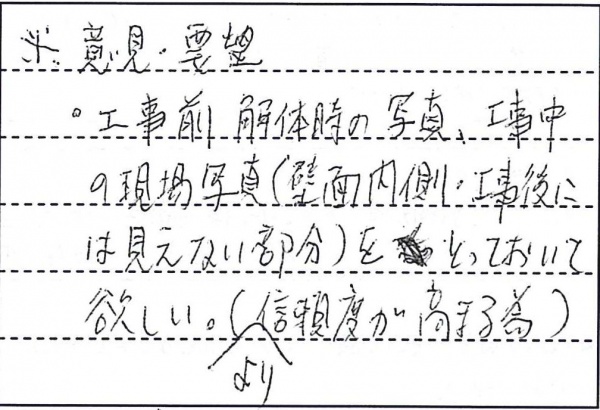 ※ 意見・要望
。工事前 解体時の写真、工事中
の現場写真(壁面内側・工事後に
は見えない部分)をとっておいて
欲しい。(より信頼度が高まる為)